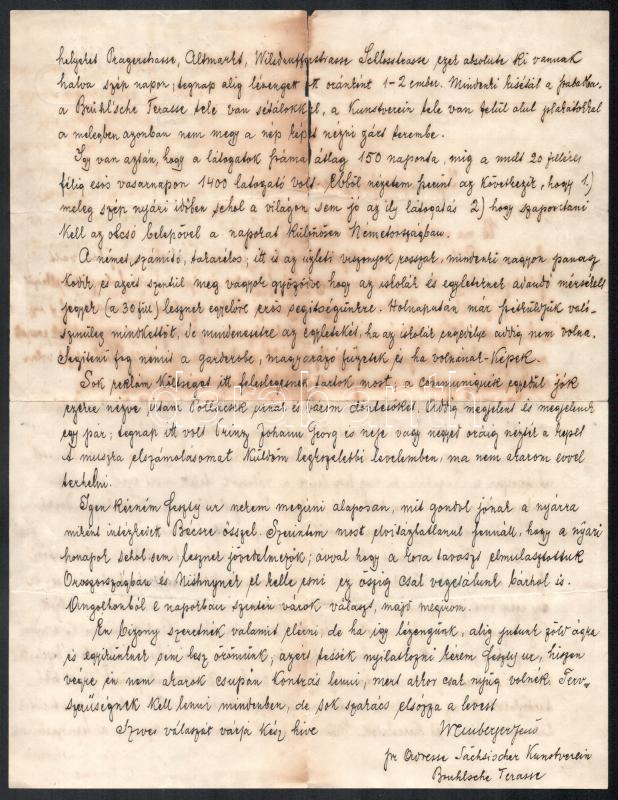 helyeket Pragerstrasse, Altmarkt, Wilsdrufferstrasse Seestrasse ezek absolute ki vannak
halva szép napon; tegnap alig lézengett itt óránként 1-2 ember. Mindenki kisétál a szabadba.
a Brühl'sche Terasse tele van sétálókkal, a Kunstverein tele van felül alul plakátokkal
a melegben azonban nem megy a nép képet nézni zárt terembe.
Igy van aztán, hogy a látogatok száma átlag 150 naponta, mig a mult 20 filléres
félig esős vasárnapon 1400 látogató volt. Ebből nézetem szerint az következik, hogy 1.)
meleg szép nyári időben sehol a világon sem jó az ily látogatás 2) hogy szaporitani
kell az olcsó belépővel a napokat különösen Németországban.
A német, számitó, takarékos; itt is az üzleti viszonyok rosszak, mindenki nagyon panasz
kodik, és azért szentül meg vagyok győződve hogy az iskolák és egyleteknek adandó mérsékelt
jegyek (a 30 fill) lesznek egyelőre erős segitségünkre. Holnapután már szétküldjük való-
szinüleg mindkettőt, de mindenesetre az egyletekét, ha az iskolák engedélye addig nem volna.
Segiteni fog nemit a garderobe, magyarázó füzetek és ha volnának - képek.
Sok reklám költséget itt feleslegesnek tartok most, a communiquék egyedül jók
ezekre nézve irtam Pollacsek urnak és várom döntésöket. Addig megjelent és megjelenik
egy pár; tegnap itt volt Prinz Johann Georg és neje vagy negyed óráig nézték a képet
A muszka elszámolásomat küldöm legközelebbi levelemben, ma nem akarom evvel
terhelni.
Igen kérném Feszty ur nekem megirni alaposan, mit gondol jónak a nyárra
miként intézkedik Bécsre összel. Szerintem most elvitázhatlanul fennáll, hogy a nyári
hónapok sehol sem lesznek jövedelmezők; avval hogy a kora tavaszt elmulasztottuk
Oroszországban és Nishnynek el kelle esni ez őszig csak vegetálunk bárhol is.
Angolhonból e napokban szintén várok választ, majd megirom.
Én bizony szeretnék valamit elérni, de ha igy lézengünk, alig jutunk zöld ágra
és egyikünknek sem lesz örömünk; azért tessék nyilatkozni kérem Feszty ur, hiszen
végre én nem akarok csupán kontrás lenni, mert akkor csak nyűg volnék. Terv-
szerüségnek kell lenni mindenben, de sok szakács elsózza a levest
Szives válaszát várja kész hive Weinberger Jenő
pr Adresse Sächsischer Kunstverein
Bruhlsche Terasse
darabanth